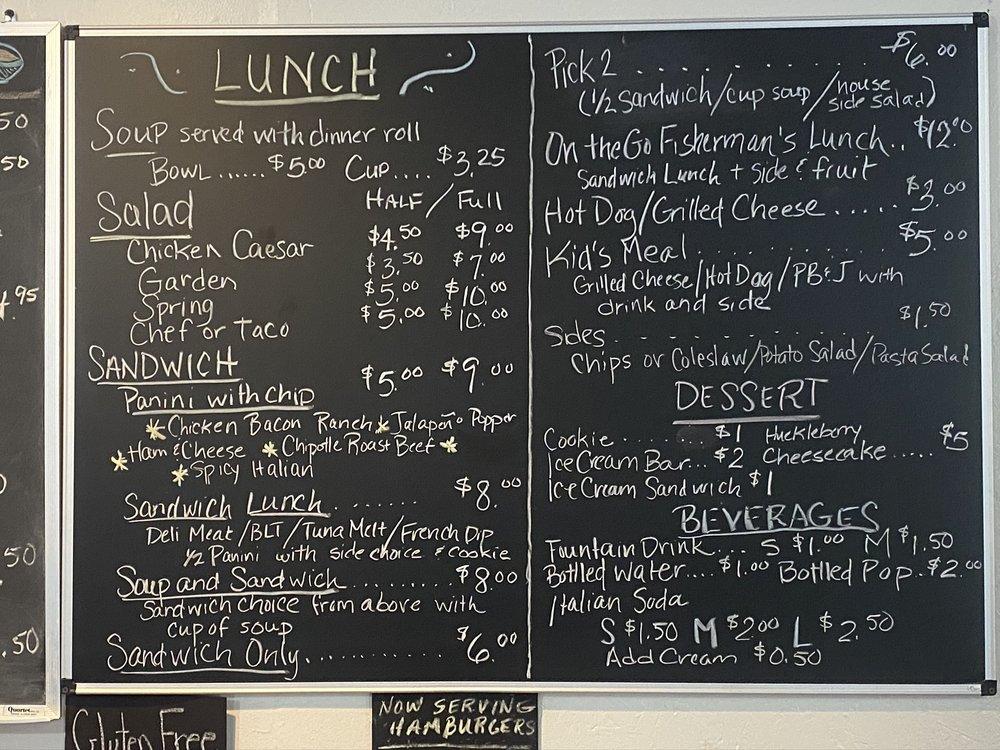 50
50
.95
50
.50
LUNCH
Soup served with dinner roll
Bowl ...... $5.00 Cup.... $3.25
Salad HALF / Full
Chicken Caesar $4.50 $9.00
Garden $3.50 $7.00
Spring $5.00 $10.00
Chef or Taco $5.00 $10.00
SANDWICH
Panini with chip $5.00 $9.00
Chicken Bacon Ranch Jalapeño Popper
Ham & Cheese Chipotle Roast Beef
Spicy Italian
Sandwich Lunch ........ $8.00
Deli Meat/BLT/Tuna Melt/French Dip
1/2 Panini with side choice & cookie
Soup and Sandwich ......... $8.00
Sandwich choice from above with
cup of soup
Sandwich Only............ $6.00
Pick 2 ............ $6.00
(1/2 Sandwich/cup soup/house
side salad)
On the Go Fisherman's Lunch.. $12.00
Sandwich Lunch + side & fruit
Hot Dog/Grilled Cheese ..... $3.00
Kid's Meal ............ $5.00
Grilled Cheese/Hot Dog/PB&J with
drink and side
Sides ............ $1.50
Chips or Coleslaw/Potato Salad/Pasta Salad
DESSERT
Cookie ........ $1 Huckleberry
Ice Cream Bar... $2 Cheesecake..... $5
Ice Cream Sandwich $1
BEVERAGES
Fountain Drink... S $1.00 M $1.50
Bottled Water.... $1.00 Bottled Pop.. $2.00
Italian Soda
S $1.50 M $2.00 L $2.50
Add Cream $0.50
Quartet
Gluten Free
NOW SERVING
HAMBURGERS